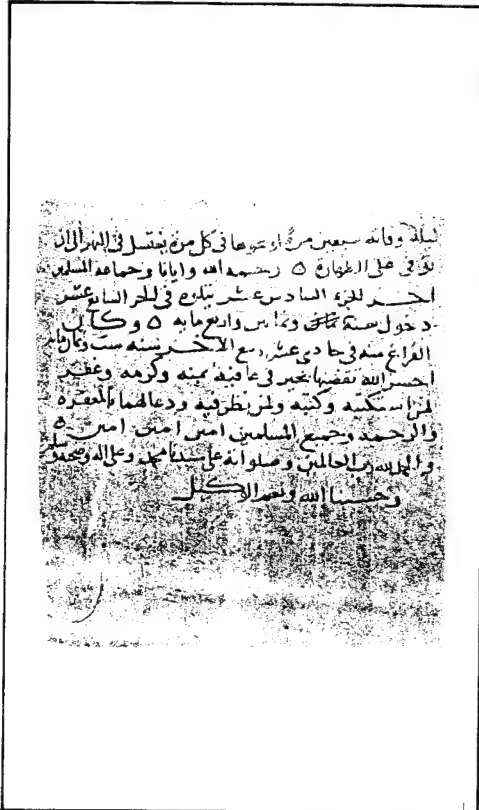 ليلة وفاته سبعين مرة أو نحوها في كل مرة يغتسل في النهر إلى أن
توفي على الطهارة ٥ رحمه الله وايانا وجماعة المسلمين
اخر الجزء السادس عشر يتلوه في الجزء السابع عشر
دخول سنة وثمانين واربع مايه ٥ وكان
الفراغ منه في حادي عشر ربيع الاخر سنة ست وثمان مايه
احسن الله تقضيها بخير في عافية بمنه وكرمه وغفر
لمن استكتبه وكتبه ولمن نظر فيه ودعا لهما بالمغفرة
والرحمة وجميع المسلمين امين امين امين ٥
والحمد لله رب العالمين وصلواته على سيدنا محمد وعلى اله وصحبه وسلم
وحسبنا الله ونعم الوكيل